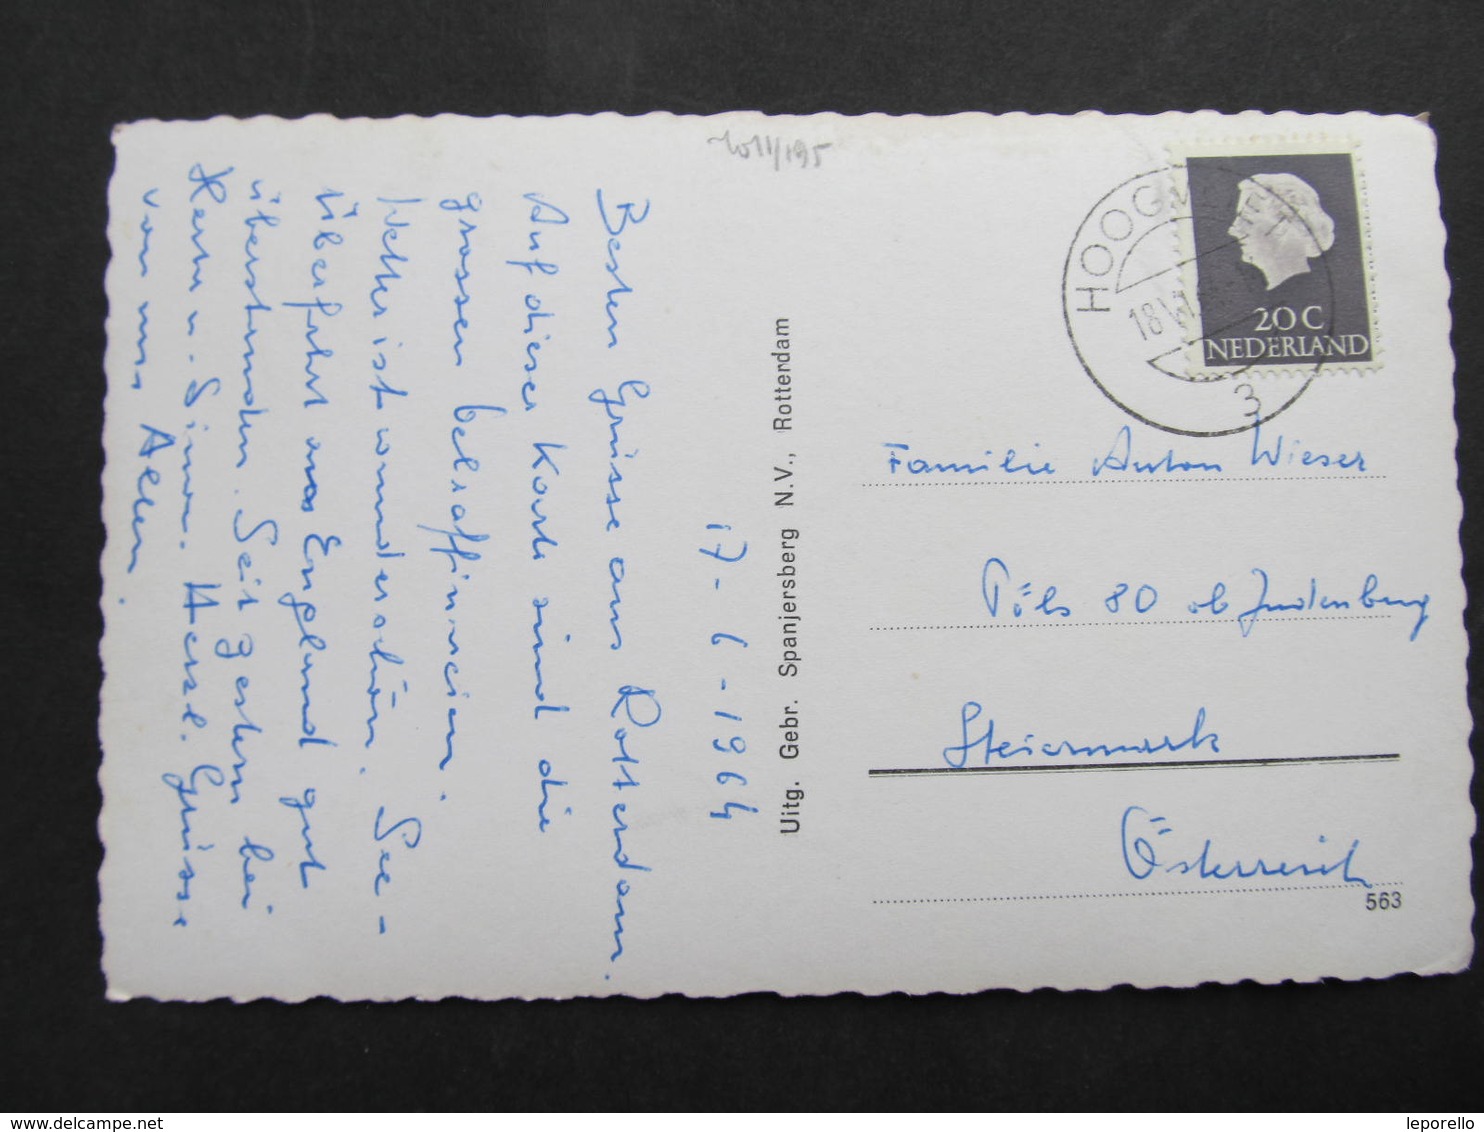 17-6-1964
Besten Grüsse aus Rotterdam.
Auf dieser Karte sind die
grossen
Wetter ist wunderschön. See-
überfahrt aus England gut
überstanden. Seit gestern bei
Herrn u. Herzl. Grüsse
von uns Allen.
Uitg. Gebr. Spanjersberg N.V., Rotterdam
HOOGVLIET
18 VI
3
20C
NEDERLAND
Familie Anton Wieser
Pöls 80 ob Judenburg
Steiermark
Österreich
563
www.delcampe.net
leporello